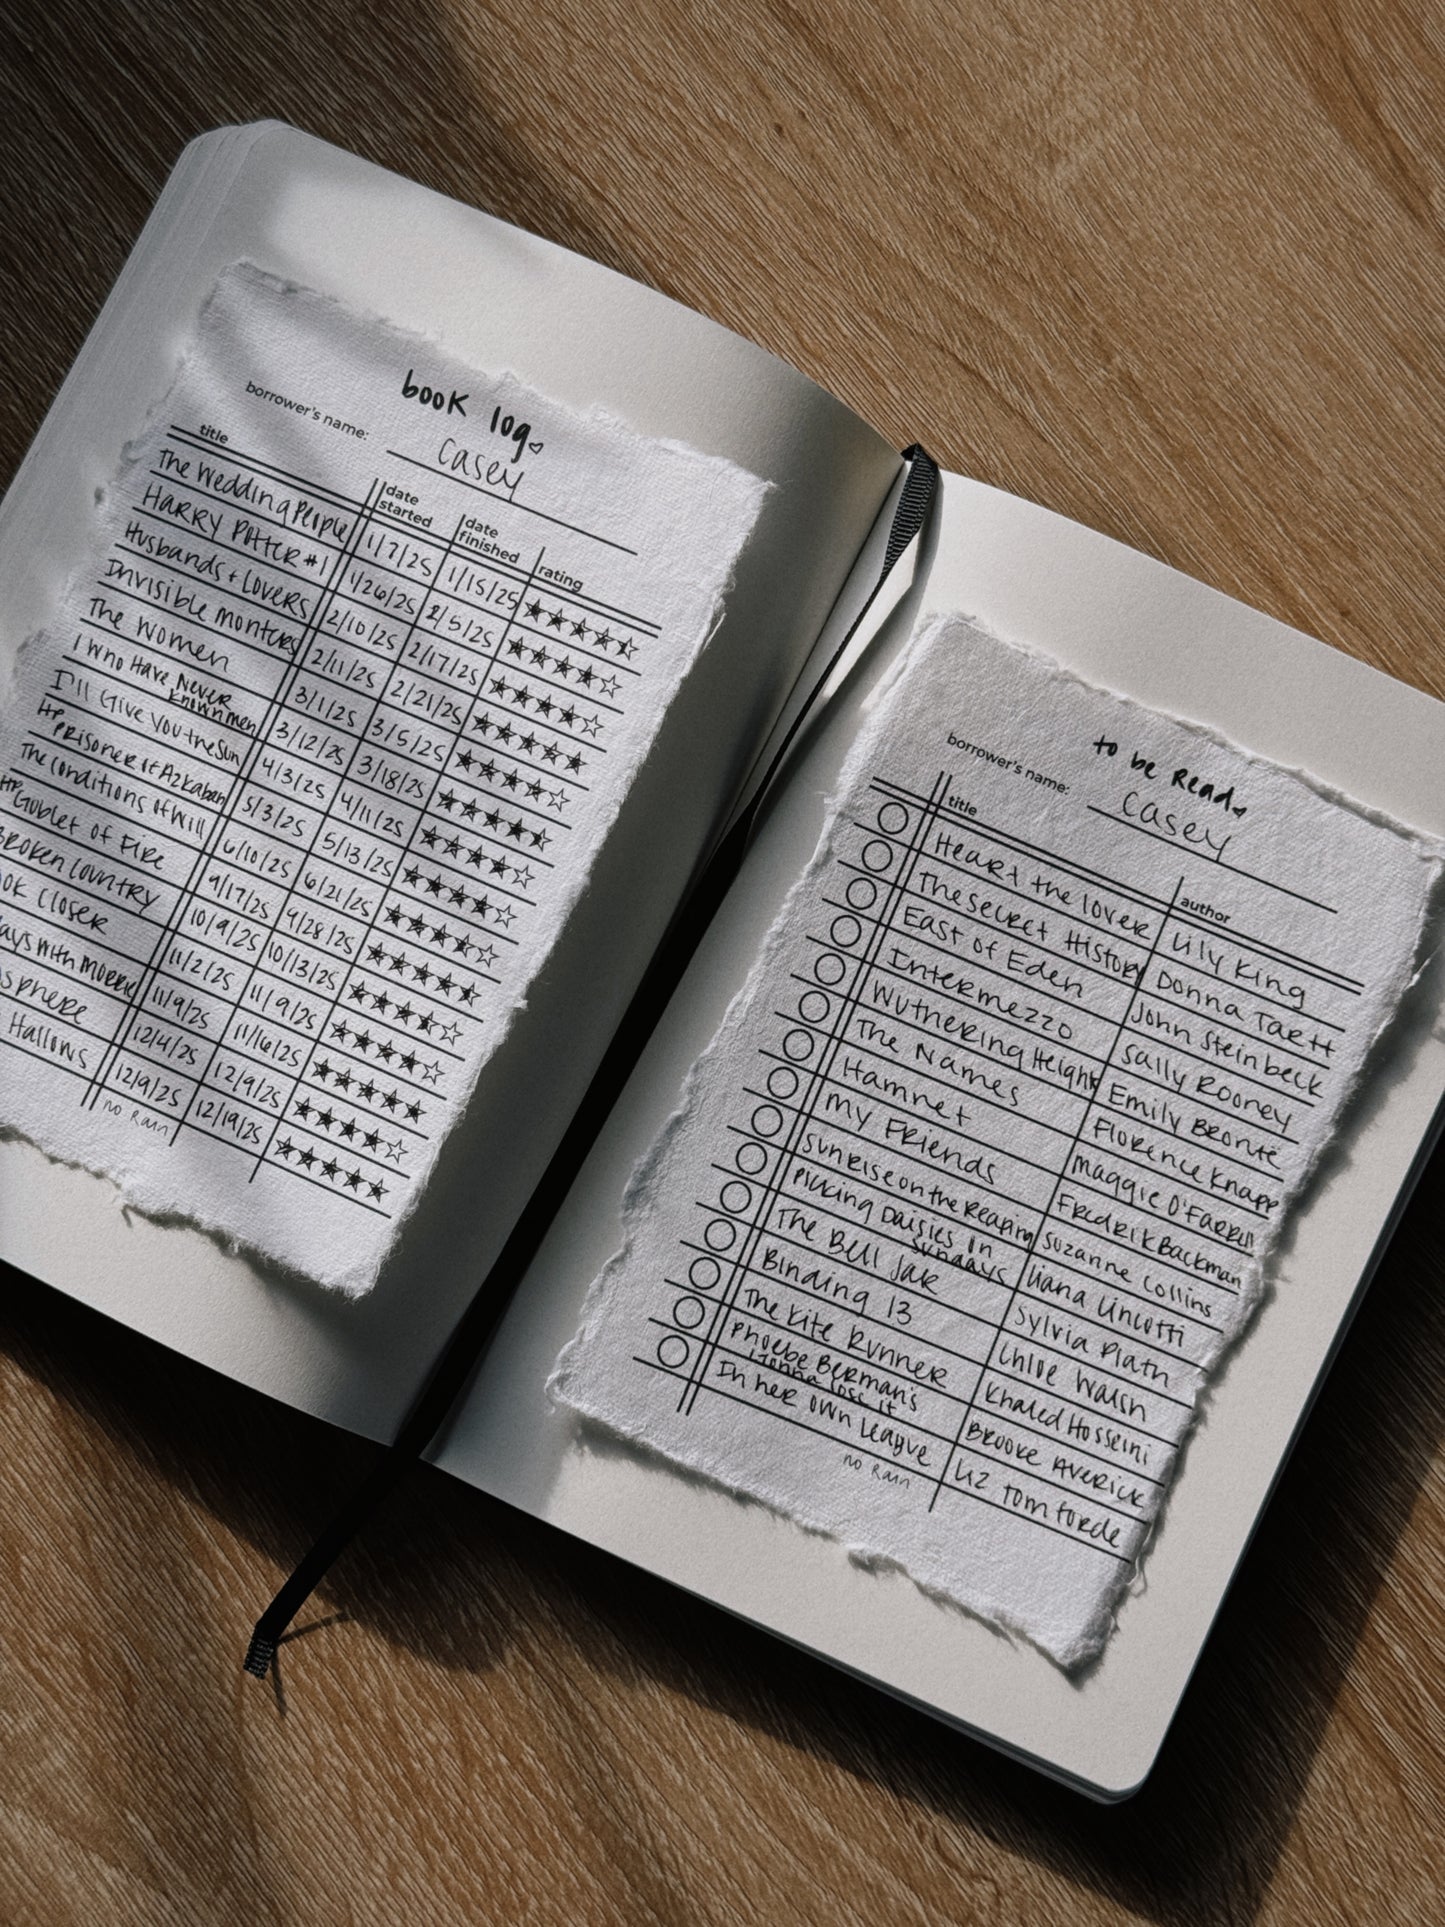 book log
borrower's name: Casey
title date started date finished rating
The Wedding People 1/7/25 1/15/25
HARRY POTTER #1 1/26/25 2/5/25
Husbands + Lovers 2/10/25 2/17/25
Invisible monters 2/11/25 2/21/25
The Women 3/1/25 3/5/25
I Who Have Never known men 3/12/25 3/18/25
I'll Give You the Sun 4/3/25 4/11/25
HP Prisoner of Azkaban 5/3/25 5/13/25
The Conditions of Will 6/10/25 6/21/25
HP Goblet of Fire 9/17/25 9/28/25
Broken Country 10/9/25 10/13/25
ook Closer 11/2/25 11/9/25
ays with morrie 11/9/25 11/16/25
osphere 12/4/25 12/9/25
Hallows 12/9/25 12/19/25
no Rain
to be Read
borrower's name: Casey
title author
Heart the lover Lily King
The secret History Donna Tartt
East of Eden John Steinbeck
Intermezzo Sally Rooney
Wuthering Heights Emily Brontë
The Names Florence Knapp
Hamnet Maggie O'Farrell
My Friends Fredrik Backman
Sunrise on the Reaping Suzanne Collins
Picking Daisies on Sundays Liana Cincotti
The Bell Jar Sylvia Plath
Binding 13 Chloe Walsh
The Kite Runner Khaled Hosseini
Phoebe Berman's Gonna lose it Brooke Averick
In her own League Liz Tomforde
no Rain